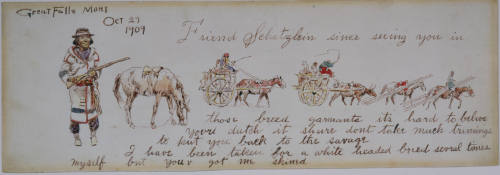 Great Falls Mont
Oct 27
1909
Friend Schatzlein since seeing you in
those breed garments its hard to belive
youre dutch it shure dont take much trimings
to put you back to the savage
I have been taken for a white headed breed several times
myself but youv got me skined